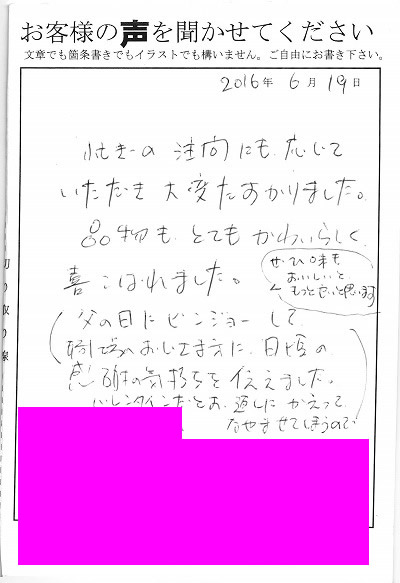 お客様の声を聞かせてください
文章でも箇条書きでもイラストでも構いません。ご自由にお書き下さい。
2016年 6月 19日
の 注向にも 応じて
いただき 大変たすかりました。
品物も とても かわいらしく、
喜こばれました。
ぜひ味も
おいしいと
もっといいと思います
父の日に ビンジョーして
おじさま方に、日頃の
感謝の気持ちを伝えました。
バレンタインだとお返しに かえって
なやませてしまうので
切り取り線